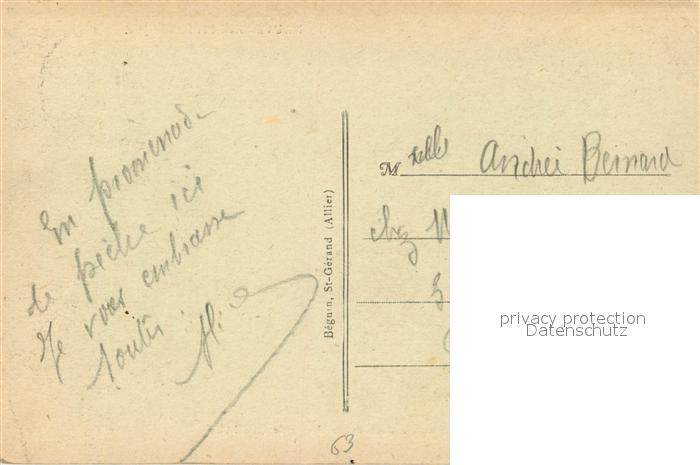 En promenade
de pêche ici
Je vous embrasse
toutes
Béguin, St-Gérand (Allier)
Melle Andrée Bernard
chez
privacy protection
Datenschutz
63